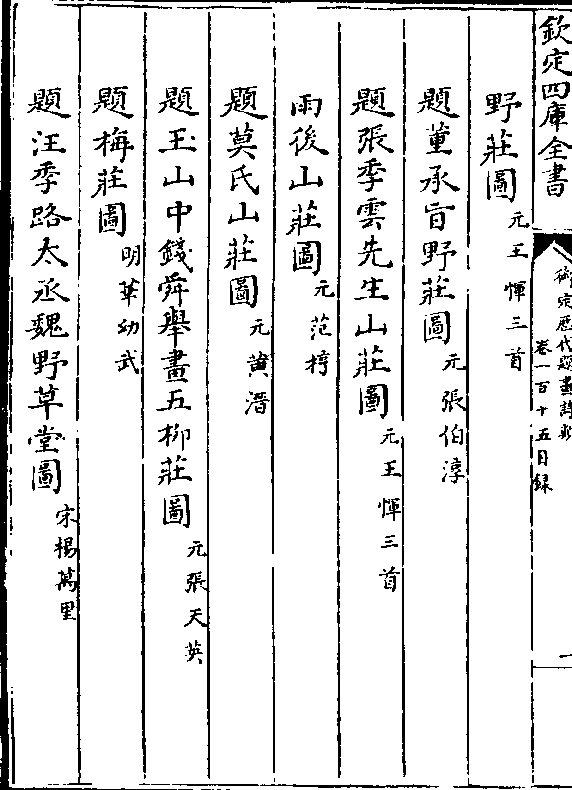 欽定四庫全書
御定歷代題畫詩類
卷一百十五目録
一
野莊圖元王惲三首
題董承旨野莊圖元張伯淳
題張季雲先生山莊圖元王惲三首
雨後山莊圖元范梈
題莫氏山莊圖元黄溍
題玉山中錢舜舉畫五柳莊圖元張天英
題梅莊圖明華幼武
題汪季路太丞魏野草堂圖宋楊萬里